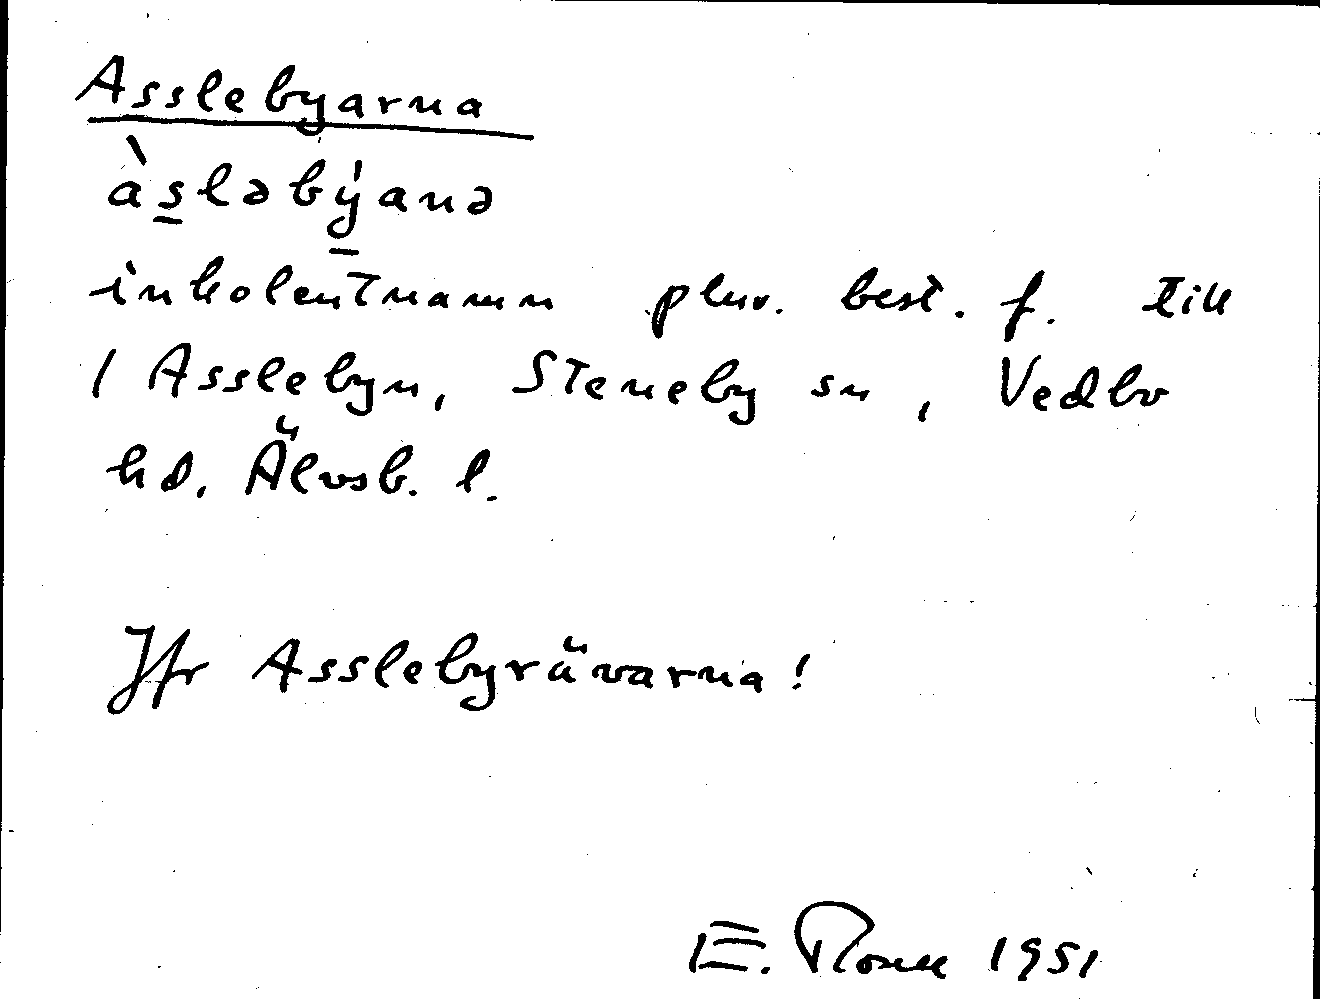 Asslebyarna
às̲ləbý̲anə
inbolentnamn plur. best. f. till
/ Asslebyn, Steneby sn, Vedbo
hd. Älvsb. l.
Jfr Asslebyrävarna!
E. 1951